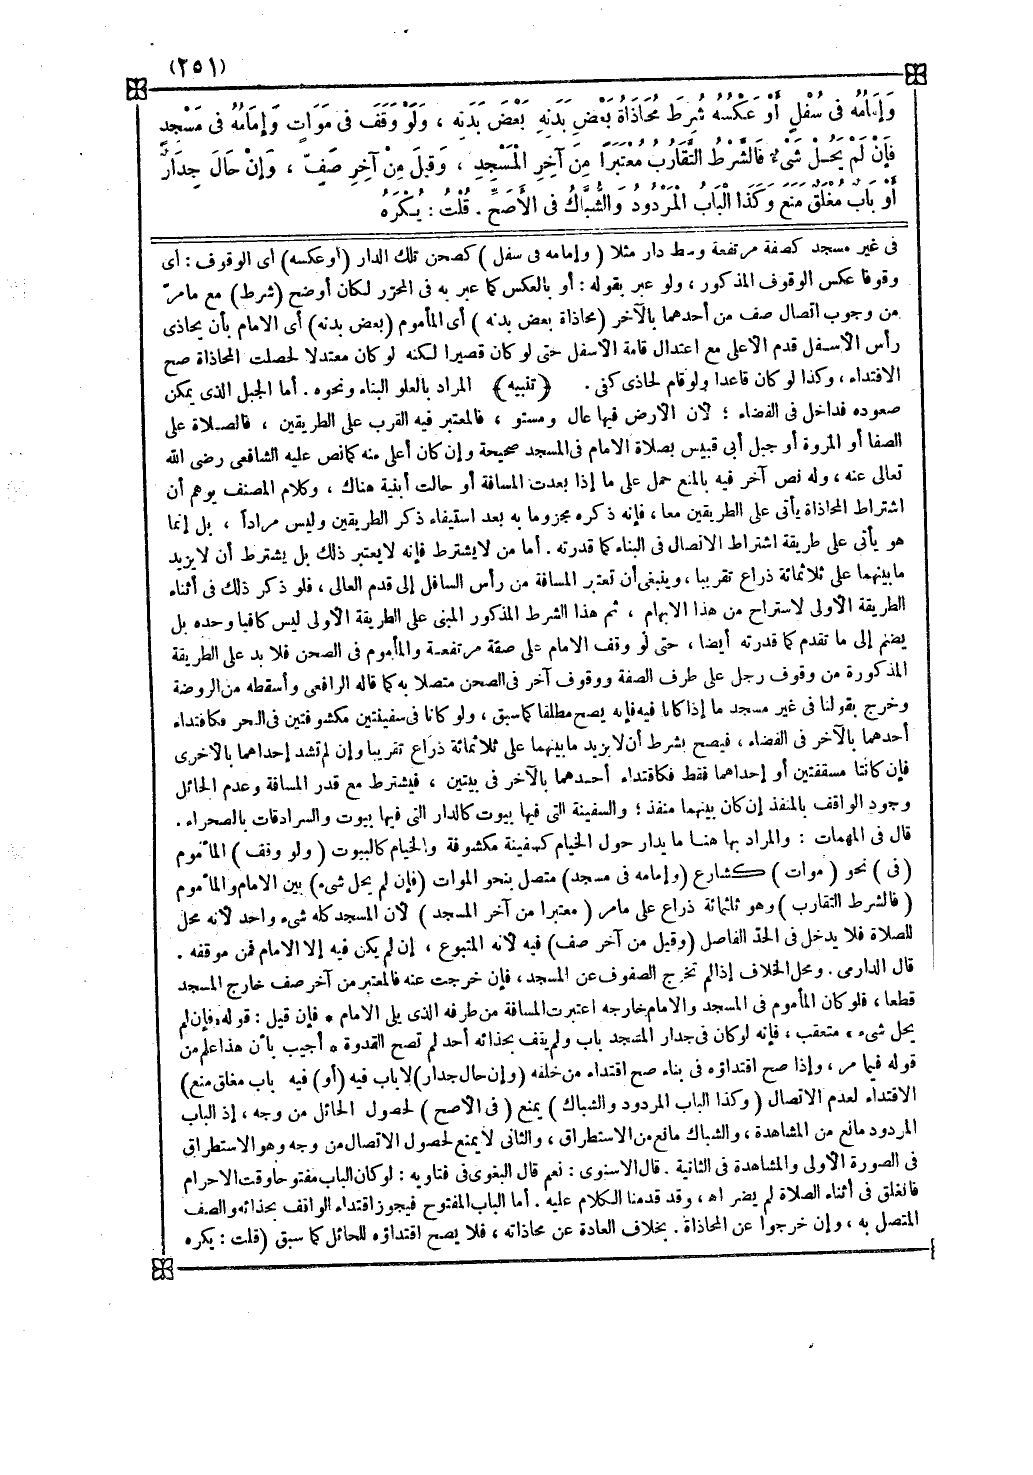 (٢٥١)
وَإِمَامُهُ فِى سُفْلٍ أَوْ عَكْسُهُ شُرِطَ مُحَاذَاةُ بَعْضِ بَدَنِهِ بَعْضَ بَدَنِهِ ، وَلَوْ وَقَفَ فِى مَوَاتٍ وَإِمَامُهُ فِى مَسْجِدٍ
فَإِنْ لَمْ يَحُلْ شَىْءٌ فَالشَّرْطُ التَّقَارُبُ مُعْتَبَرًا مِنَ آخِرِ الْمَسْجِدِ ، وَقِيلَ مِنْ آخِرِ صَفٍّ ، وَإِنْ حَالَ جِدَارٌ
أَوْ بَابٌ مُغْلَقٌ مَنَعَ وَكَذَا الْبَابُ الْمَرْدُودُ وَالشُّبَّاكُ فِى الْأَصَحِّ . قُلْتُ : يُكْرَهُ
فى غير مسجد كصفة مرتفعة وسط دار مثلا (وإمامه فى سفل) كصحن تلك الدار (أو عكسه) أى الوقوف : أى
وقوفا عكس الوقوف المذكور ، ولو عبر بقوله : أو بالعكس كما عبر به فى المحرّر لكان أوضح (شرط) مع مامرّ
من وجوب اتصال صف من أحدهما بالآخر (محاذاة بعض بدنه) أى المأموم (بعض بدنه) أى الامام بأن يحاذى
رأس الأسفل قدم الأعلى مع اعتدال قامة الأسفل حتى لو كان قصيرا لكنه لو كان معتدلا لحصلت المحاذاة صح
الاقتداء ، وكذا لو كان قاعدا ولو قام لحاذى كفى . ﴿تنبيه﴾ المراد بالعلو البناء ونحوه . أما الجبل الذى يمكن
صعوده فداخل فى الفضاء ؛ لأن الأرض فيها عال ومستو ، فالمعتبر فيه القرب على الطريقين ، فالصلاة على
الصفا أو المروة أو جبل أبى قبيس بصلاة الامام فى المسجد صحيحة وإن كان أعلى منه كما نص عليه الشافعى رضى الله
تعالى عنه ، وله نص آخر فيه بالمنع حمل على ما إذا بعدت المسافة أو حالت أبنية هناك ، وكلام المصنف يوهم أن
اشتراط المحاذاة يأتى على الطريقين معا ، فإنه ذكره مجزوما به بعد استيفاء ذكر الطريقين وليس مرادا ، بل إنما
هو يأتى على طريقة اشتراط الاتصال فى البناء كما قدرته . أما من لايشترط فإنه لايعتبر ذلك بل يشترط أن لايزيد
مابينهما على ثلاثمائة ذراع تقريبا ، وينبغى أن تعتبر المسافة من رأس السافل إلى قدم العالى ، فلو ذكر ذلك فى أثناء
الطريقة الأولى لاستراح من هذا الابهام ، ثم هذا الشرط المذكور المبنى على الطريقة الأولى ليس كافيا وحده بل
يضم إلى ما تقدم كما قدرته أيضا ، حتى لو وقف الامام على صفة مرتفعة والمأموم فى الصحن فلا بد على الطريقة
المذكورة من وقوف رجل على طرف الصفة ووقوف آخر فى الصحن متصلا به كما قاله الرافعى وأسقطه من الروضة
وخرج بقولنا فى غير مسجد ما إذا كانا فيه فإنه يصح مطلقا كما سبق ، ولو كانا فى سفينتين مكشوفتين فى البحر فكاقتداء
أحدهما بالآخر فى الفضاء ، فيصح بشرط أن لايزيد مابينهما على ثلاثمائة ذراع تقريبا وإن لم تشد إحداهما بالأخرى
فإن كانتا مسقفتين أو إحداهما فقط فكاقتداء أحدهما بالآخر فى بيتين ، فيشترط مع قدر المسافة وعدم الحائل
وجود الواقف بالمنفذ إن كان بينهما منفذ ؛ والسفينة التى فيها بيوت كالدار التى فيها بيوت والسرادقات بالصحراء .
قال فى المهمات : والمراد بها هنا ما يدار حول الخيام كسفينة مكشوفة والخيام كالبيوت (ولو وقف) المأموم
(فى) نحو (موات) كشارع (وإمامه فى مسجد) متصل بنحو الموات (فإن لم يحل شىء) بين الامام والمأموم
(فالشرط التقارب) وهو ثلثمائة ذراع على مامر (معتبرا من آخر المسجد) لأن المسجد كله شىء واحد لأنه محل
للصلاة فلا يدخل فى الحدّ الفاصل (وقيل من آخر صف) فيه لأنه المتبوع ، إن لم يكن فيه إلا الامام فمن موقفه .
قال الدارمى . ومحل الخلاف إذا لم تخرج الصفوف عن المسجد ، فإن خرجت عنه فالمعتبر من آخر صف خارج المسجد
قطعا ، فلو كان المأموم فى المسجد والامام خارجه اعتبرت المسافة من طرفه الذى يلى الامام * فإن قيل : قوله فإن لم
يحل شىء * متعقب ، فإنه لو كان فى جدار المسجد باب ولم يقف بحذائه أحد لم تصح القدوة * أجيب بأن هذا علم من
قوله فيما مر ، وإذا صح اقتداؤه فى بناء صح اقتداء من خلفه (وإن حال جدار) لا باب فيه (أو) فيه باب مغلق منع)
الاقتداء لعدم الاتصال (وكذا الباب المردود والشباك) يمنع (فى الأصح) لحصول الحائل من وجه ، إذ الباب
المردود مانع من المشاهدة ، والشباك مانع من الاستطراق ، والثانى لايمنع لحصول الاتصال من وجه وهو الاستطراق
فى الصورة الأولى والمشاهدة فى الثانية . قال الاسنوى : نعم قال البغوى فى فتاويه : لو كان الباب مفتوحا وقت الاحرام
فانغلق فى أثناء الصلاة لم يضر اه ، وقد قدمنا الكلام عليه . أما الباب المفتوح فيجوز اقتداء الواقف بحذائه والصف
المتصل به ، وإن خرجوا عن المحاذاة . بخلاف العادة عن محاذاته ، فلا يصح اقتداؤه للحائل كما سبق (قلت : يكره